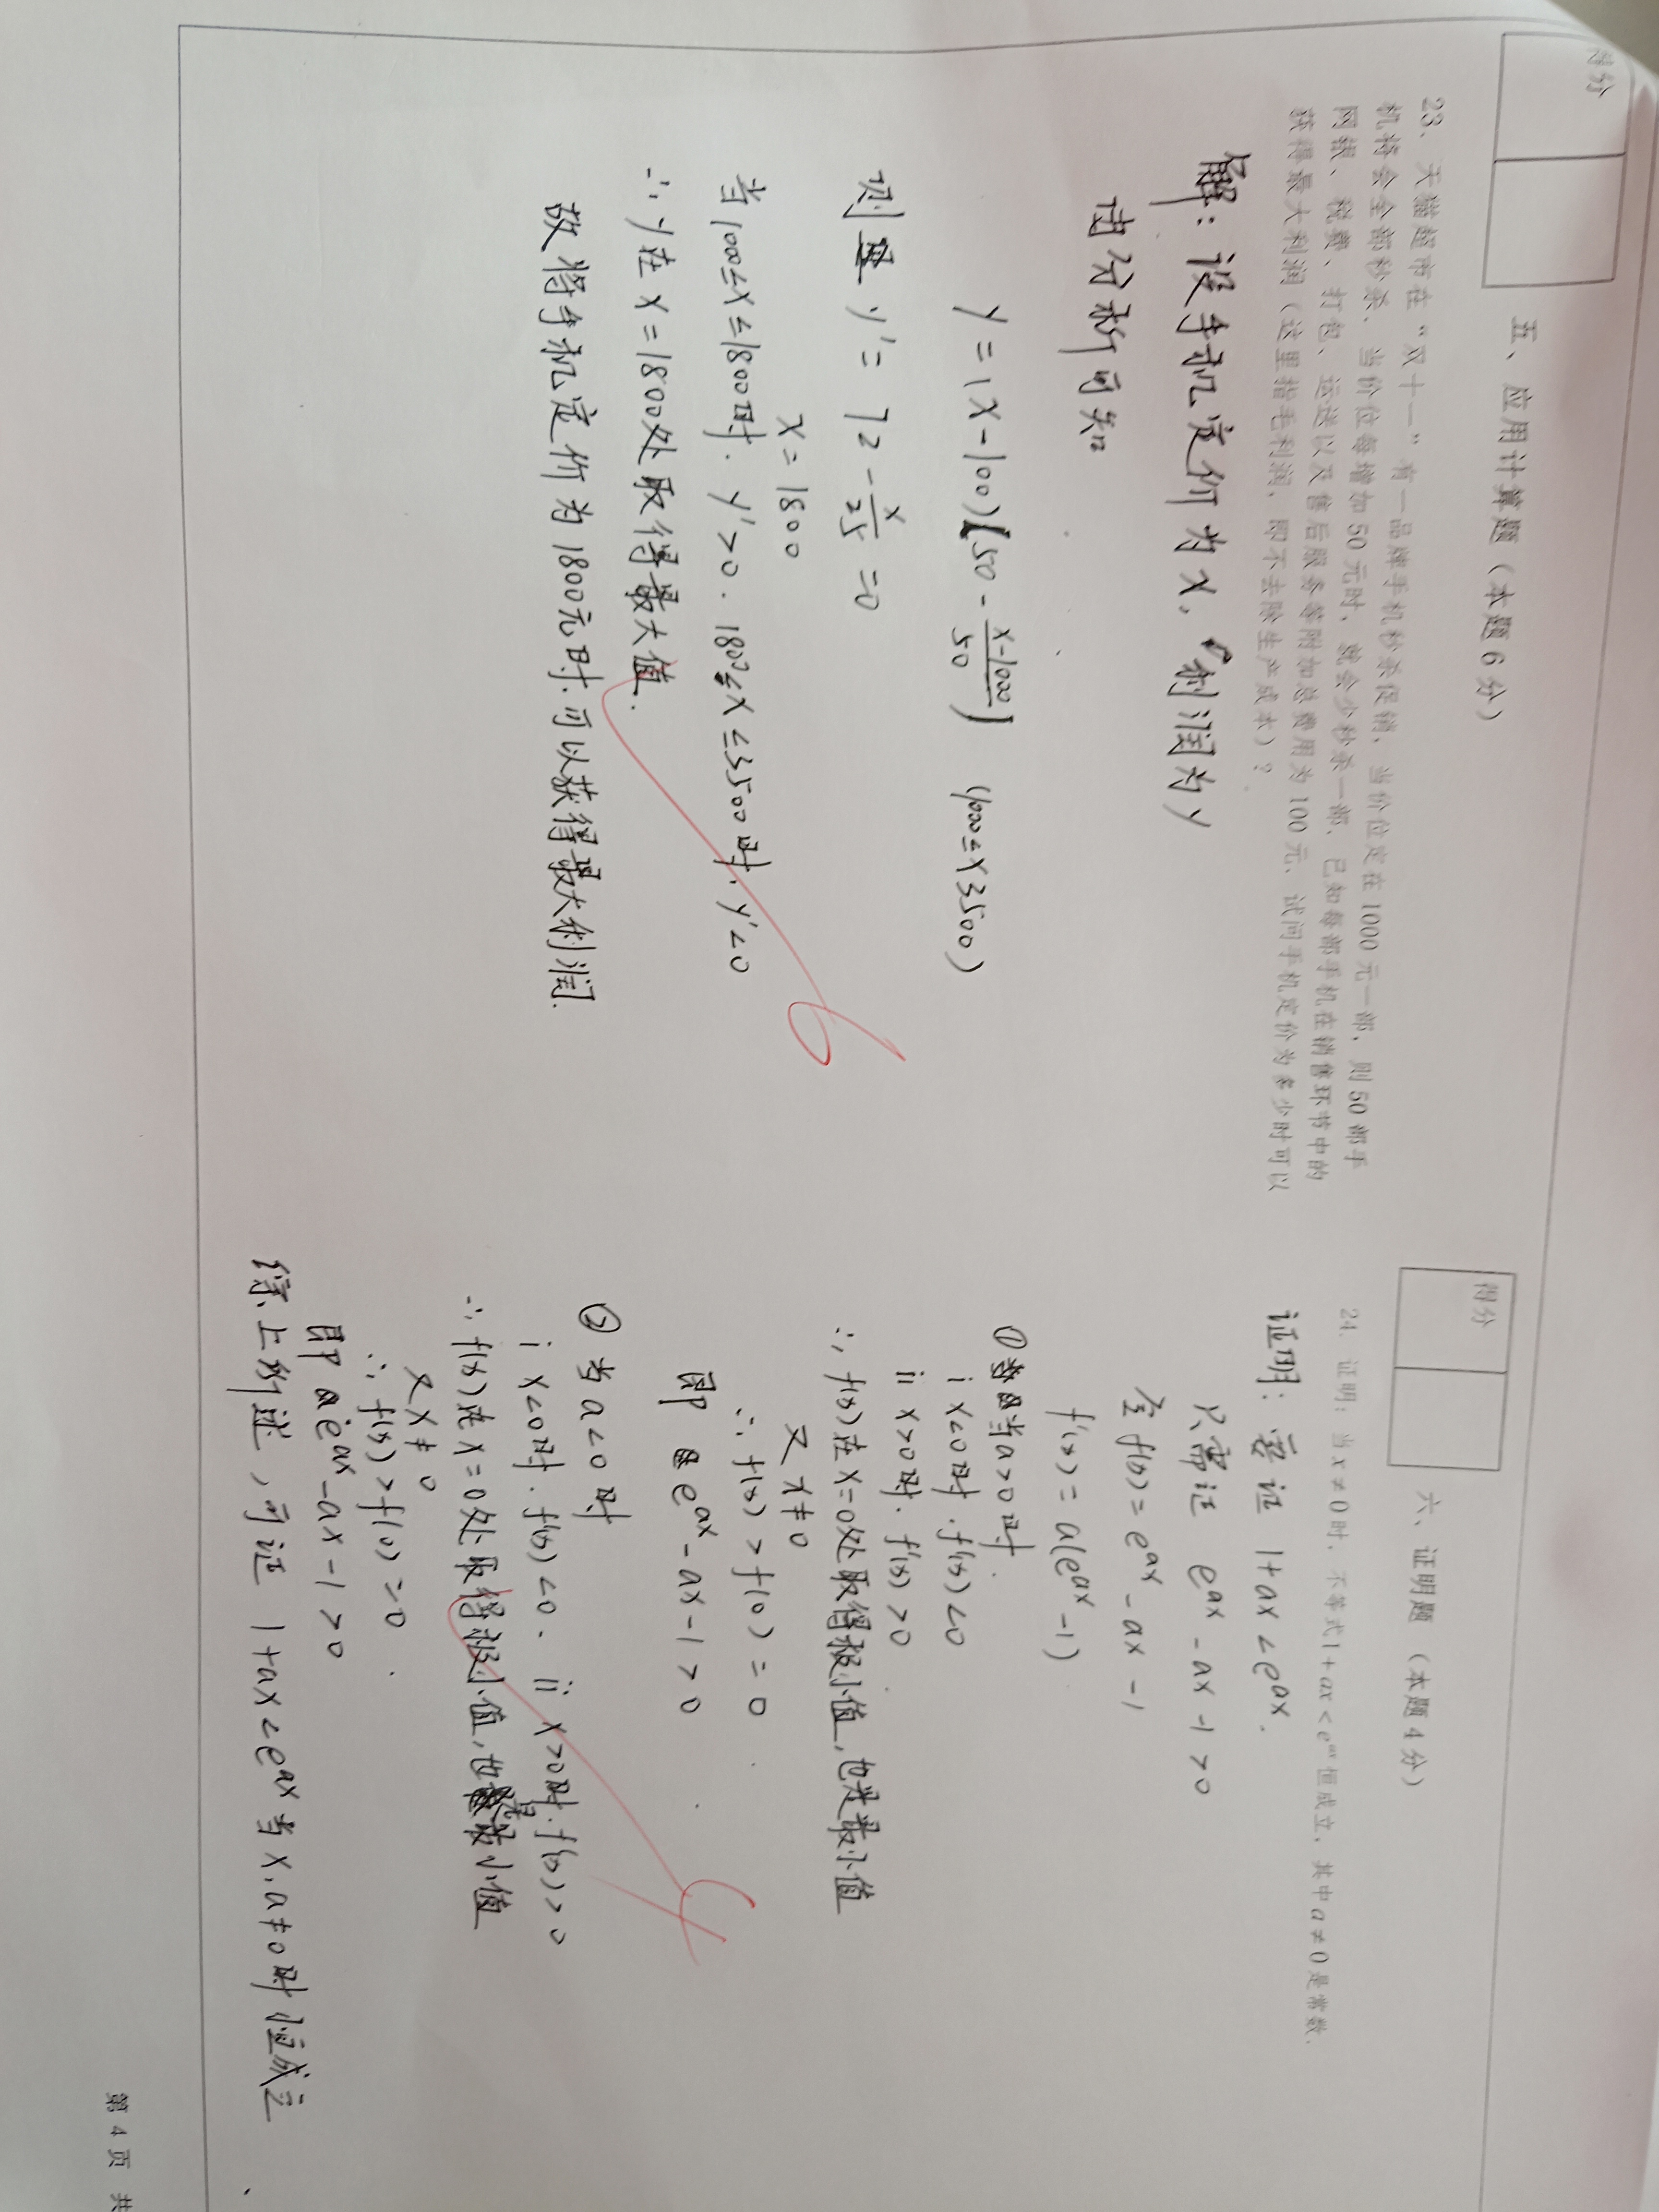 得分
五、应用计算题（本题6分）
23. 天猫超市在“双十一”有一品牌手机秒杀促销，当价位定在1000元一部，则50部手
机将会全部秒杀．当价位每增加50元时，就会少秒杀一部．已知每部手机在销售环节中的
网银、税费、打包、运送以及售后服务等附加总费用为100元．试问手机定价为多少时可以
获得最大利润（这里指毛利润，即不去除生产成本）？
解：设手机定价为x，利润为y
由分析可知
y=(x-100)[50-\frac{x-1000}{50}] (1000≤x3500)
则 y'= 72-\frac{x}{25}=0
x=1800
当1000≤x≤1800时．y'>0．1800≤x≤3500时．y'<0
∴y在x=1800处取得最大值．
故将手机定价为1800元时．可以获得最大利润．
6
得分
六、证明题（本题4分）
24. 证明：当x≠0时，不等式1+ax<e^{ax}恒成立，其中a≠0是常数．
证明：要证 1+ax<e^{ax}．
只需证 e^{ax}-ax-1>0
令f(x)=e^{ax}-ax-1
f'(x)=a(e^{ax}-1)
①当a>0时．
i x<0时．f'(x)<0
ii x>0时．f'(x)>0
∴f(x)在x=0处取得极小值，也是最小值
又x≠0
∴f(x)>f(0)=0
即 e^{ax}-ax-1>0
②当a<0时
i x<0时．f'(x)<0． ii x>0时．f'(x)>0
∴f(x)在x=0处取得极小值，也是最小值
又x≠0
∴f(x)>f(0)=0．
即 e^{ax}-ax-1>0
综上所述，可证 1+ax<e^{ax}当x，a≠0时恒成立
4
第 4 页 共